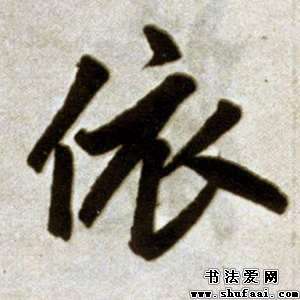 依
书法爱网
www.shufaai.com